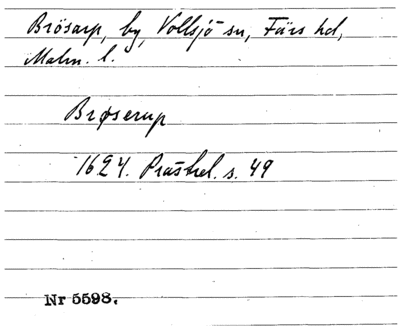 Brösarp, by, Vollsjö sn, Färs hd,
Malm. l.
Brøserup
1624. Prästrel. s. 49
Nr 5598.